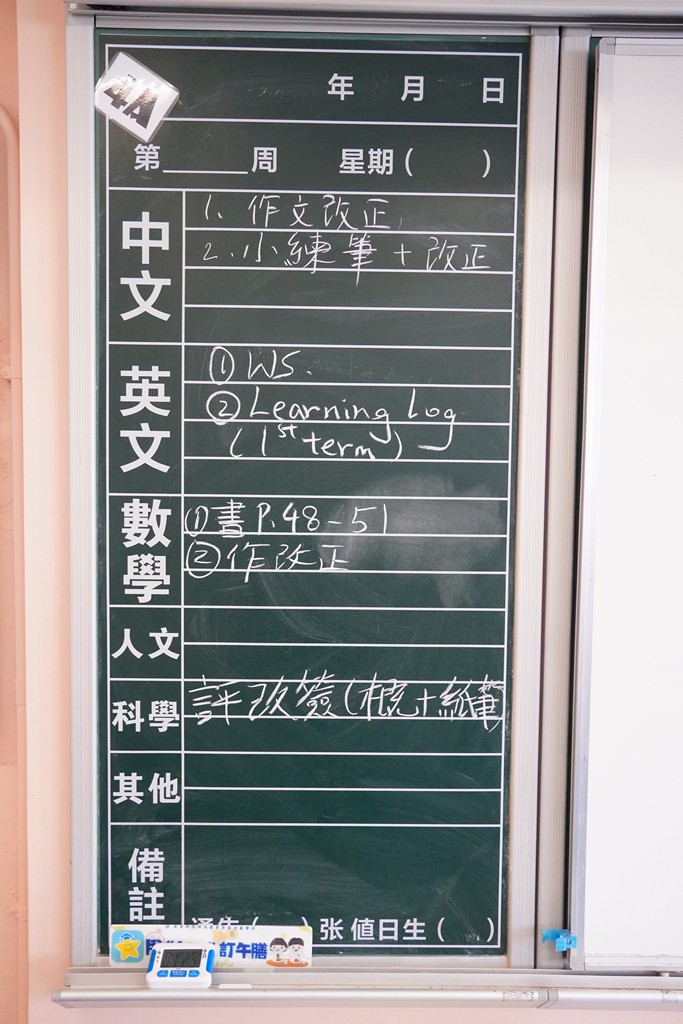 4A
年 月 日
第______周 星期( )
中文
1. 作文改正
2. 小練筆 + 改正
英文
① WS.
② Learning Log
(1st term)
數學
① 書P.48-51
② 作改正
人文
科學
評改簽(概+紙筆)
其他
備註
通告( )张 值日生( )
訂午膳